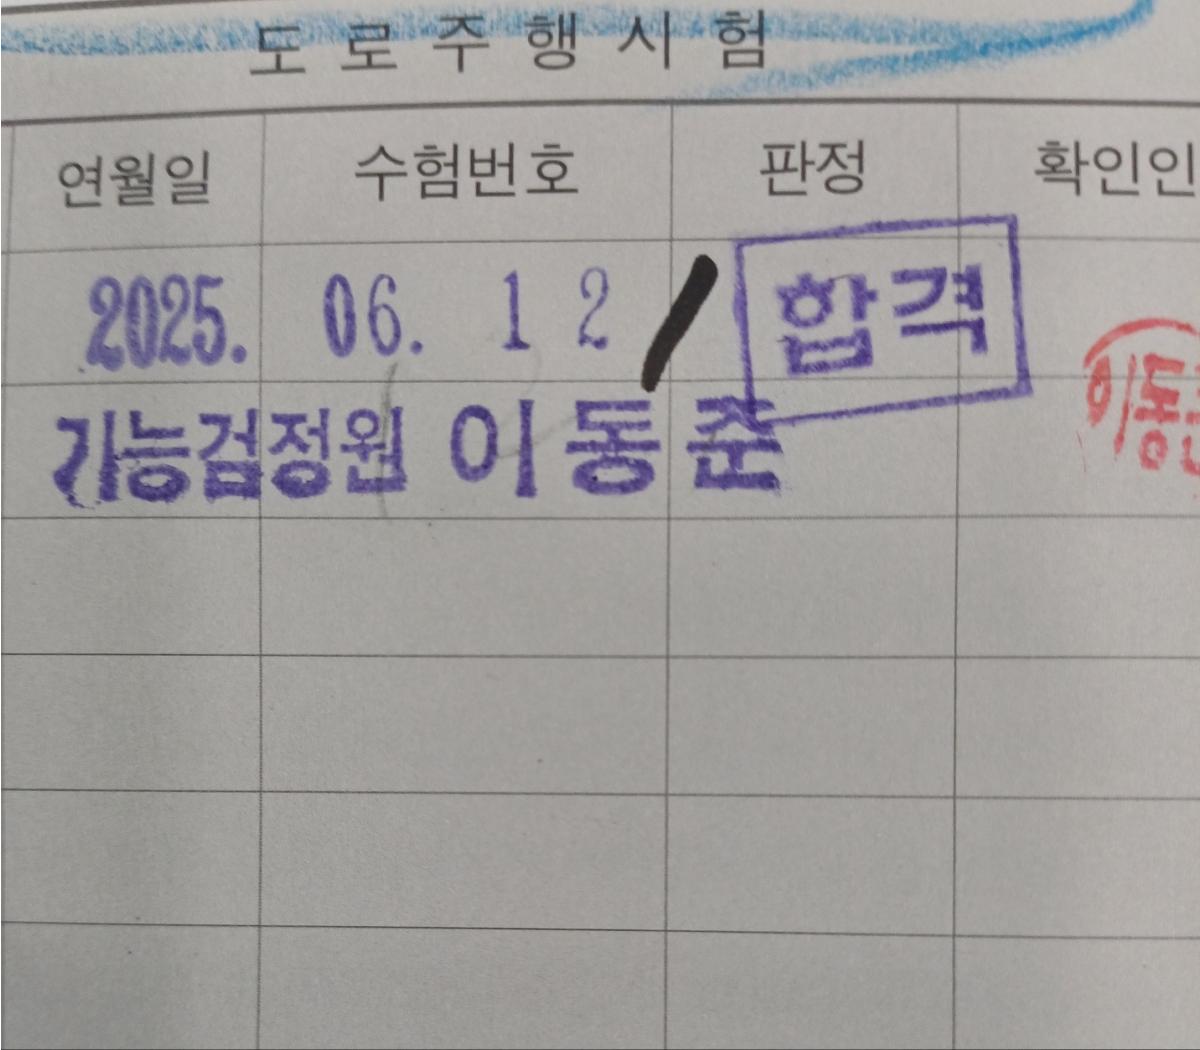 도로주행시험
연월일 수험번호 판정 확인인
2025. 06. 12 합격
기능검정원 이동준
이동